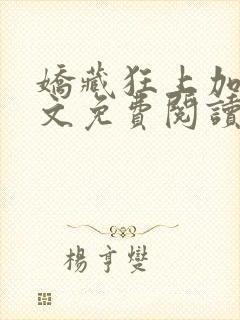 嬌藏狂上加
文免費閱讀
楊亨燮